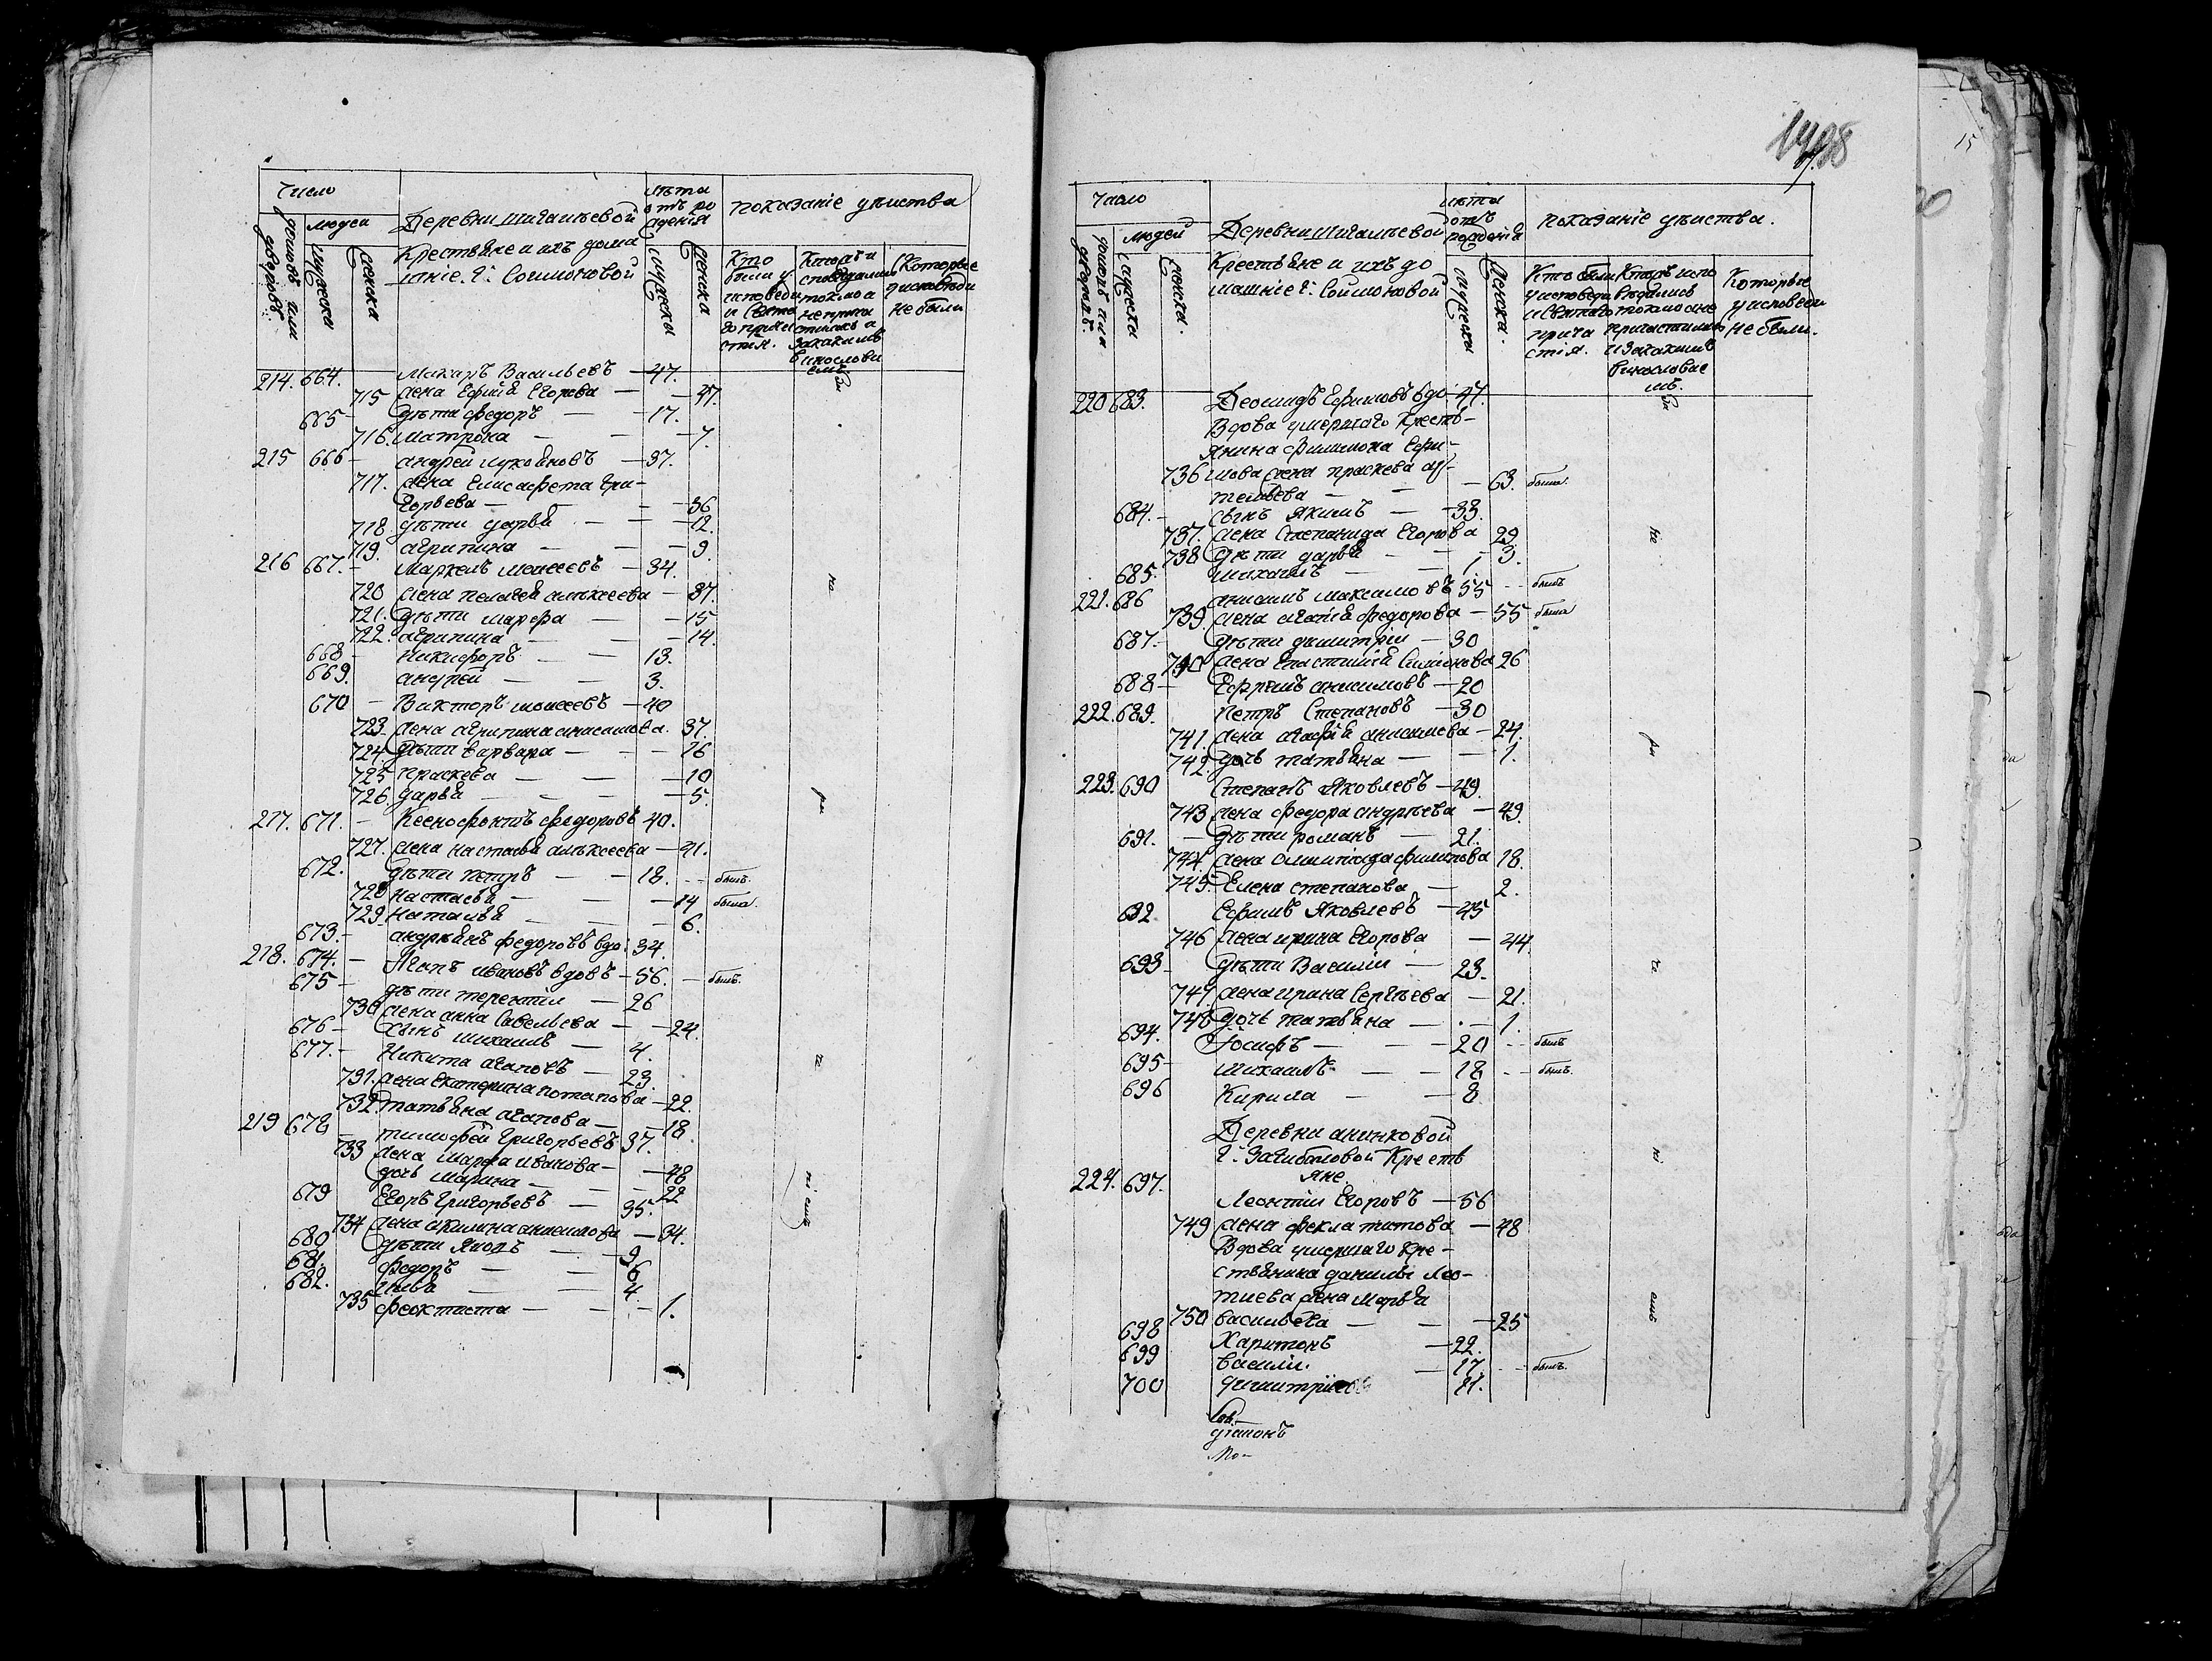 Число
домовъ или дворовъ.
людей
мужеска
женска
Деревни Шигалѣевой
Крестьяне и ихъ дома
шніе. Г: Соймоновой
лѣта
отъ ро
жденія
мужеска
женска
показаніе дѣйства
Кто
были у
исповеди
и Свята
го прича
стия.
Которые
не были
214. 664. Макаръ Васильевъ — 47.
715 жена Ефимія Егорова — 47.
665 — дѣти Федоръ — 17.
716. Матрона — 7.
215 666 — Андрей Лукояновъ — 37.
717. жена Елисафета Гри-
горьева — 36
718 дѣти Дарья — 12.
719. Агрипина — 9
216 667. — Маркелъ Моисеевъ — 34.
720 жена Пелагея Алѣксеева — 37.
721. дѣти Марфа — 15
722. Агрипина — 14.
668 — Никифоръ — 13.
669. Андрей — 3.
670 — Викторъ Моисеевъ — 40
723. жена Агрипина Анисимова. 37.
724 дѣти Варвара — 16
725 Праскева — 10
726. Дарья — 5.
217. 671. — Ксенофонтъ Федоровъ 40.
727. жена Настасья Алѣксеева — 41.
672. дѣти Петръ — 18. — былъ.
728 Настасья — 14 была.
729 Наталья — 6.
673. — Андреянъ Федоровъ вдо. 34.
218. 674. — Агапъ Ивановъ вдовъ — 56. — былъ.
675 — дѣти Терентій — 26
730 жена Анна Савельева — 24.
676 — сынъ Михаилъ — 4.
677. — Никита Агаповъ — 23.
731. жена Екатерина Потапова — 22.
732. Татьяна Агапова — 18.
219 678 Тимофей Григорьевъ 37.
733 жена Марфа Иванова — 48
дочь Марина — 22
679 Егоръ Григорьевъ — 35.
734 жена Акилина Анисимова — 34.
680 дѣти Яковъ — 9
681. Федоръ — 6
682. Илья — 4.
735 Феоктиста — 1.
Число
людей
мужеска
женска.
Деревни Шигалѣевой
Крестьяне и ихъ до
машніе Г: Соймоновой
лѣта
отъ
рожденія
мужеска
женска.
показаніе дѣйства.
Кто были
у исповеди
и Святаго
прича
стія.
Которые
у исповеди
не были.
220 683. Леонидъ Ефимовъ вдо — 47.
Вдова умершаго Кресть-
янина Филимона Ефи-
736 мова жена Праскева Ар-
темьева — 63. была.
684. — сынъ Якимъ — 33.
737. жена Степанида Егорова 29.
738 дѣти Дарья — 3.
685. Михаилъ — 1
221. 686 Анисимъ Максимовъ 55 — былъ
739. жена Агафія Федорова — 55 была
687. — дѣти Димитрій — 30
740 жена Евастимія Симонова 26
688 — Ефремъ Анисимовъ — 20
222. 689. Петръ Степановъ — 30
741. жена Агафія Анисимова — 24.
742 дочь Татьяна — 1.
223. 690 Степанъ Яковлевъ — 49.
743 жена Федора Андрѣева — 49.
691. — дѣти Романъ — 21.
744. жена Олимпіада Филипова 18.
745. Елена Степанова — 2.
692 Ефимъ Яковлевъ — 45
746 жена Ирина Егорова — 44
693 — дѣти Василій — 23.
747. жена Ирина Сергѣева — 21.
748 дочь Татьяна — 1.
694. Іосифъ — 20 — былъ
695 — Михаилъ — 18 — былъ.
696 Кирила — 8
Деревни Анинковой
Г: Загибаловой Кресть
яне
224. 697. Леонтій Егоровъ — 56
749 жена Фекла Титова — 48
Вдова умершаго Кре-
стьянина Данилы Лео-
тиева жена Марья
750 Васильева — 25
698 Харитонъ — 22.
699 Василій. — 17. — былъ.
700 Димитрій 11.
діаконъ